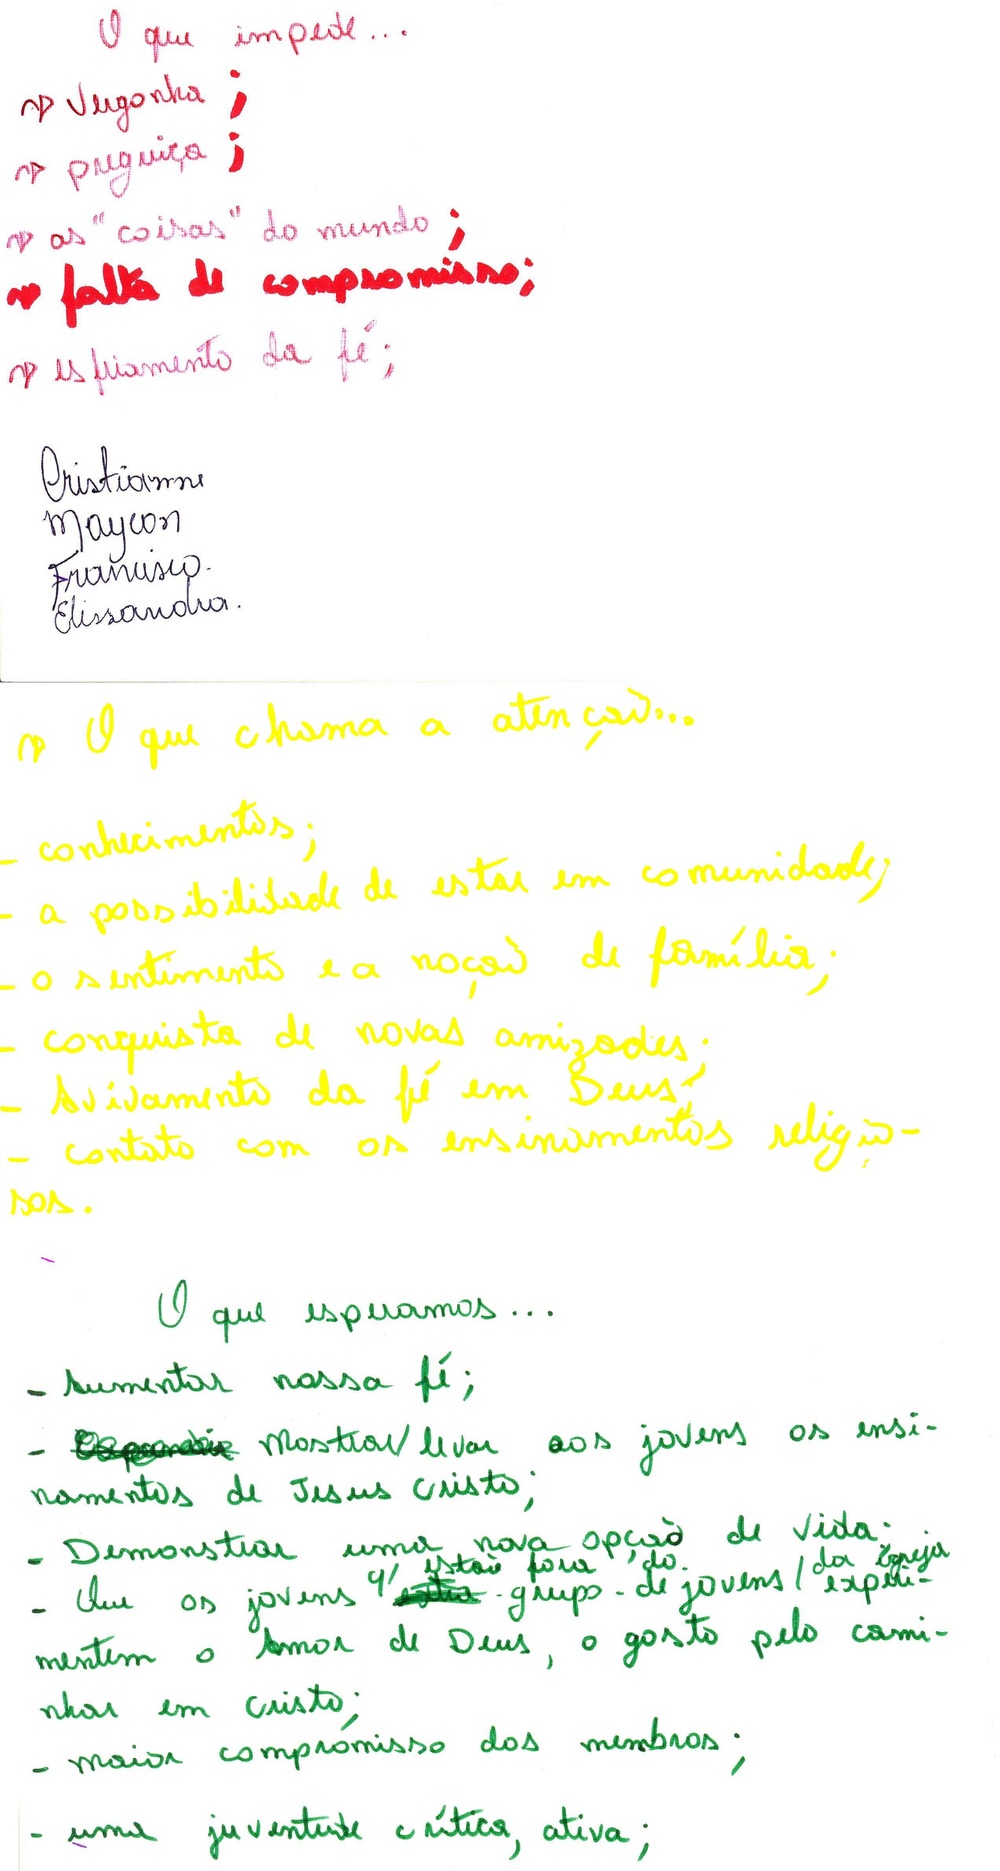 O que impede...
→ Vergonha;
→ preguiça;
→ as "coisas" do mundo;
→ falta de compromisso;
→ esfriamento da fé;
Cristianne
Maycon
Francisco.
Elissandra.
→ O que chama a atenção...
- conhecimentos;
- a possibilidade de estar em comunidade;
- o sentimento e a noção de família;
- conquista de novas amizades;
- Avivamento da fé em Deus;
- contato com os ensinamentos religio-
sos.
O que esperamos...
- Aumentar nossa fé;
- Mostrar/levar aos jovens os ensi-
namentos de Jesus Cristo;
- Demonstrar uma nova opção de vida;
- Que os jovens q/ estão fora do grupo de jovens / da Igreja experi-
mentem o Amor de Deus, o gosto pelo cami-
nhar em Cristo;
- maior compromisso dos membros;
- uma juventude crítica, ativa;